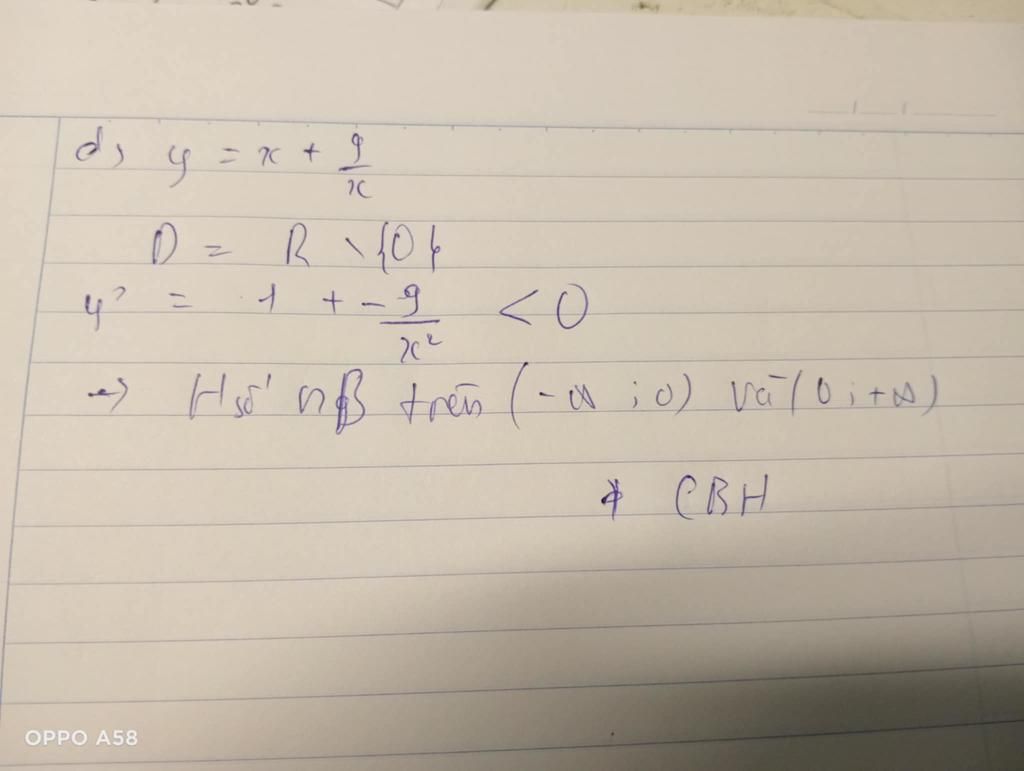 d, y = x + 9/x
D = R \ {0}
y' = 1 + -9/x² < 0
→ H số nB trên (-∞ ; 0) và (0 ; +∞)
* CBH
OPPO A58